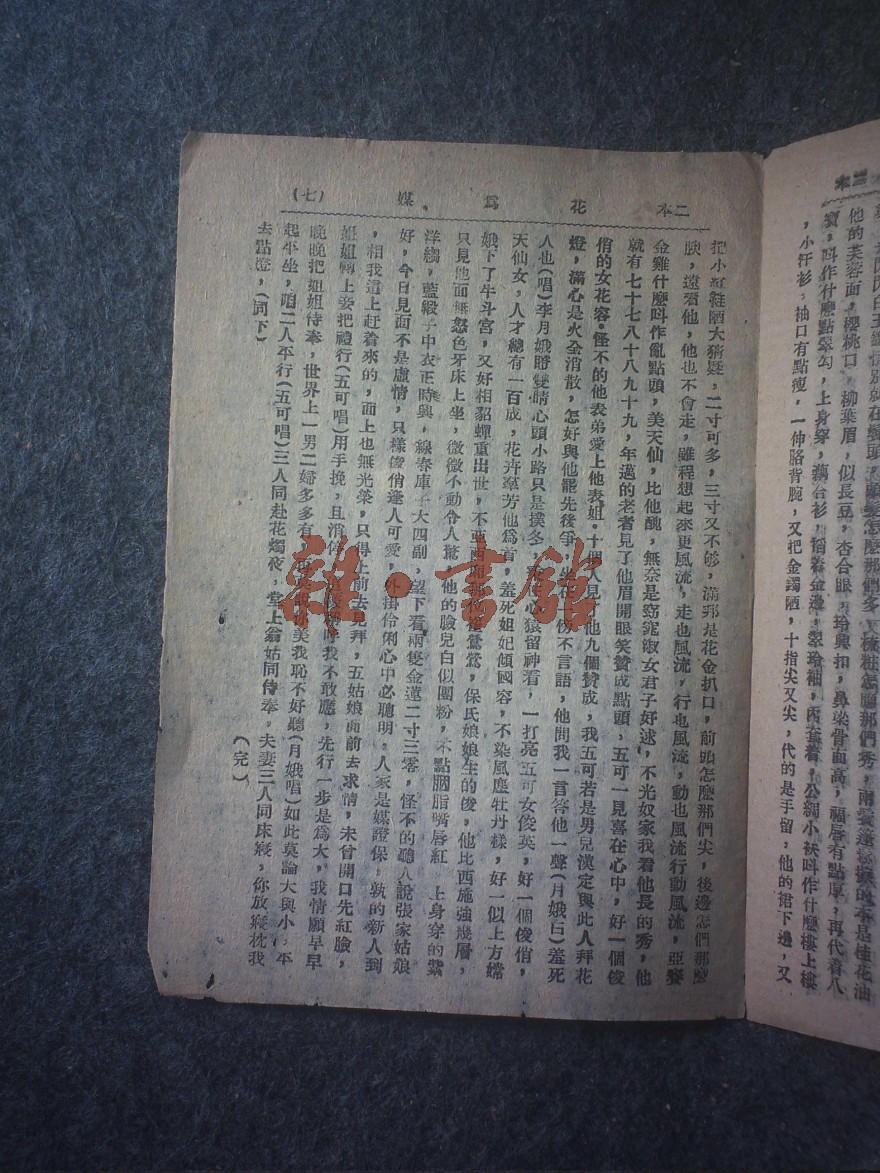 二本 花為媒 (七)
他的芙蓉面，櫻桃口，柳葉眉，似長豆，杏合眼，玲興扣，鼻梁骨面高，福唇有點厚，再代着八
寶，叫作什麼點翠勾，上身穿，藕合衫，稻着金邊，翠玲袖，內套着，公綢小袂叫作什麼樓上樓
，小汗衫，抽口有點瘦，一伸胳背腕，又把金鐲陋，十指尖又尖，代的是手留，他的裙下邊，又
把小紅鞋陋大猜疑，二寸可多，三寸又不够，滿邦是花金扒口，前頭怎麼那們尖，後邊怎們那麼
瘐，遠看他，他也不會走，雖程想起來更風流，走也風流，行也風流，動也風流行動風流，亞賽
金雞什麼叫作亂點頭，美天仙，比他醜，無奈是窈窕淑女君子好逑，不光奴家我看他長的秀，他
就有七十七八十八九十九，年邁的老者見了他眉開眼笑贊成點頭，五可一見喜在心中，好一個俊
俏的女花容·怪不的他表弟愛上他表姐·十個人見了他九個贊成，我五可若是男兒漢定與此人拜花
燈，滿心是火全消散，怎好與他罷先後爭，坐在一傍不言語，他問我一言答他一聲(月娥白)羞死
人也(唱)李月娥睜雙睛心頭小路只是撲冬，心猿留神看，一打亮五可女俊英，好一個俊俏，
天仙女，人才總有一百成，花卉羣芳他為首，羞死妲妃傾國容，不染風塵牡丹樣，好一似上方嫦
娥下了牛斗宮，又好相貂蟬重出世，不亞鶯鶯，保氏娘娘生的俊，他比西施強幾層，
只見他面無怒色牙床上坐，微微不動令人驚，他的臉兒白似團粉，不點胭脂嘴唇紅 上身穿的紫
洋縐，藍緞子中衣正時興，線春庫子大四副，望下看兩隻金蓮二寸三零，怪不的聽人說張家姑娘
好，今日見面不是虛情，只樣俊俏逢人可愛，外掛伶俐心中必聰明，人家是媒證保，孰的新人到
，相我這上赶着來的，面上也無光榮，只得上前去見拜，五姑娘面前去求情，未曾開口先紅臉，
姐姐轉上妾把禮行(五可唱)用手挽，且消停，我不敢應，先行一步是為大，我情願早早
晚晚把姐姐侍奉，世界上一男二婦多多有，你美我恥不好聽(月娥唱)如此莫論大與小，平
起平坐，咱二人平行(五可唱)三人同赴花燭夜，堂上翁姑同侍奉，夫妻三人同床寢，你放寢枕我
去點燈，(同下)
(完)
雜·書館